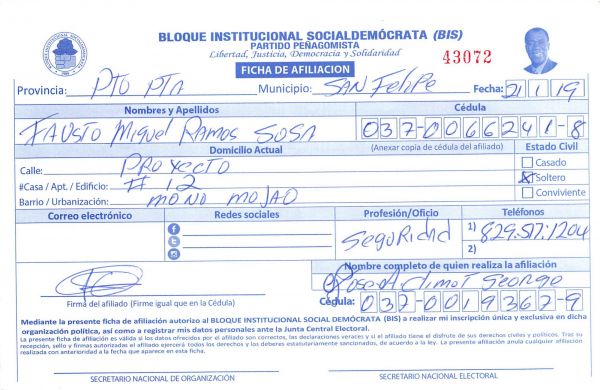 BLOQUE INSTITUCIONAL SOCIALDEMÓCRATA (BIS)
PARTIDO PEÑAGOMISTA
Libertad, Justicia, Democracia y Solidaridad
43072
FICHA DE AFILIACION
Provincia: PTO PTA Municipio: SAN Felipe Fecha: 21/1/19
Nombres y Apellidos Cédula
FAUSTO Miguel RAMOS SOSA 037-0066241-8
Domicilio Actual (Anexar copia de cédula del afiliado) Estado Civil
Calle: PROYECTO Casado
#Casa / Apt. / Edificio: # 12 X Soltero
Barrio / Urbanización: MONO MOJAO Conviviente
Correo electrónico Redes sociales Profesión/Oficio Teléfonos
SeguRidad 1) 829.517.1204
2)
Nombre completo de quien realiza la afiliación
Firma del afiliado (Firme igual que en la Cédula) Cégula: 037-0019367-9
Mediante la presente ficha de afiliación autorizo al BLOQUE INSTITUCIONAL SOCIAL DEMÓCRATA (BIS) a realizar mi inscripción única y exclusiva en dicha
organización política, así como a registrar mis datos personales ante la Junta Central Electoral.
La presente ficha de afiliación es válida si los datos ofrecidos por el afiliado son correctos, las declaraciones veraces y si el afiliado tiene el disfrute de sus derechos civiles y políticos. Tras su
recepción, sello y firmas autorizadas el afiliado ejercerá todos los derechos y los deberes estatutariamente sancionados, de acuerdo a la ley. La presente afiliación anula cualquier afiliación
realizada con anterioridad a la fecha que aparece en esta ficha.
SECRETARIO NACIONAL DE ORGANIZACIÓN SECRETARIO NACIONAL ELECTORAL